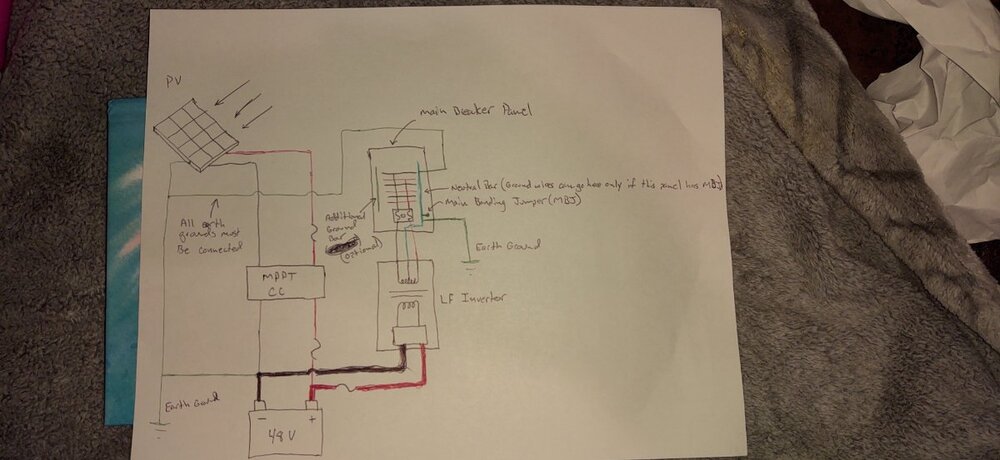 PV
main Breaker Panel
Neutral Bar (Ground wires can go here only if this panel has MBJ)
Main Bonding Jumper (MBJ)
Additional
Ground
Bar
(optional)
All earth
grounds must
Be connected
Earth Ground
MPPT
CC
LF Inverter
Earth Ground
- +
48V